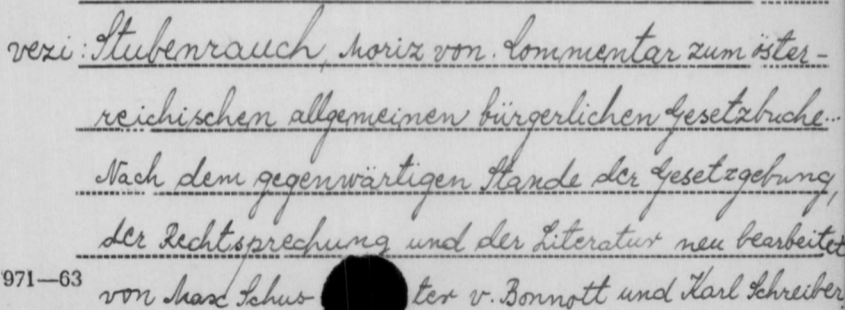 vezi: Stubenrauch, Moriz von. Commentar zum öster-
reichischen allgemeinen bürgerlichen Gesetzbuche...
Nach dem gegenwärtigen Stande der Gesetzgebung,
der Rechtsprechung und der Literatur neu bearbeitet
971—63 von Max Schus ter v. Bonnott und Karl Schreiber